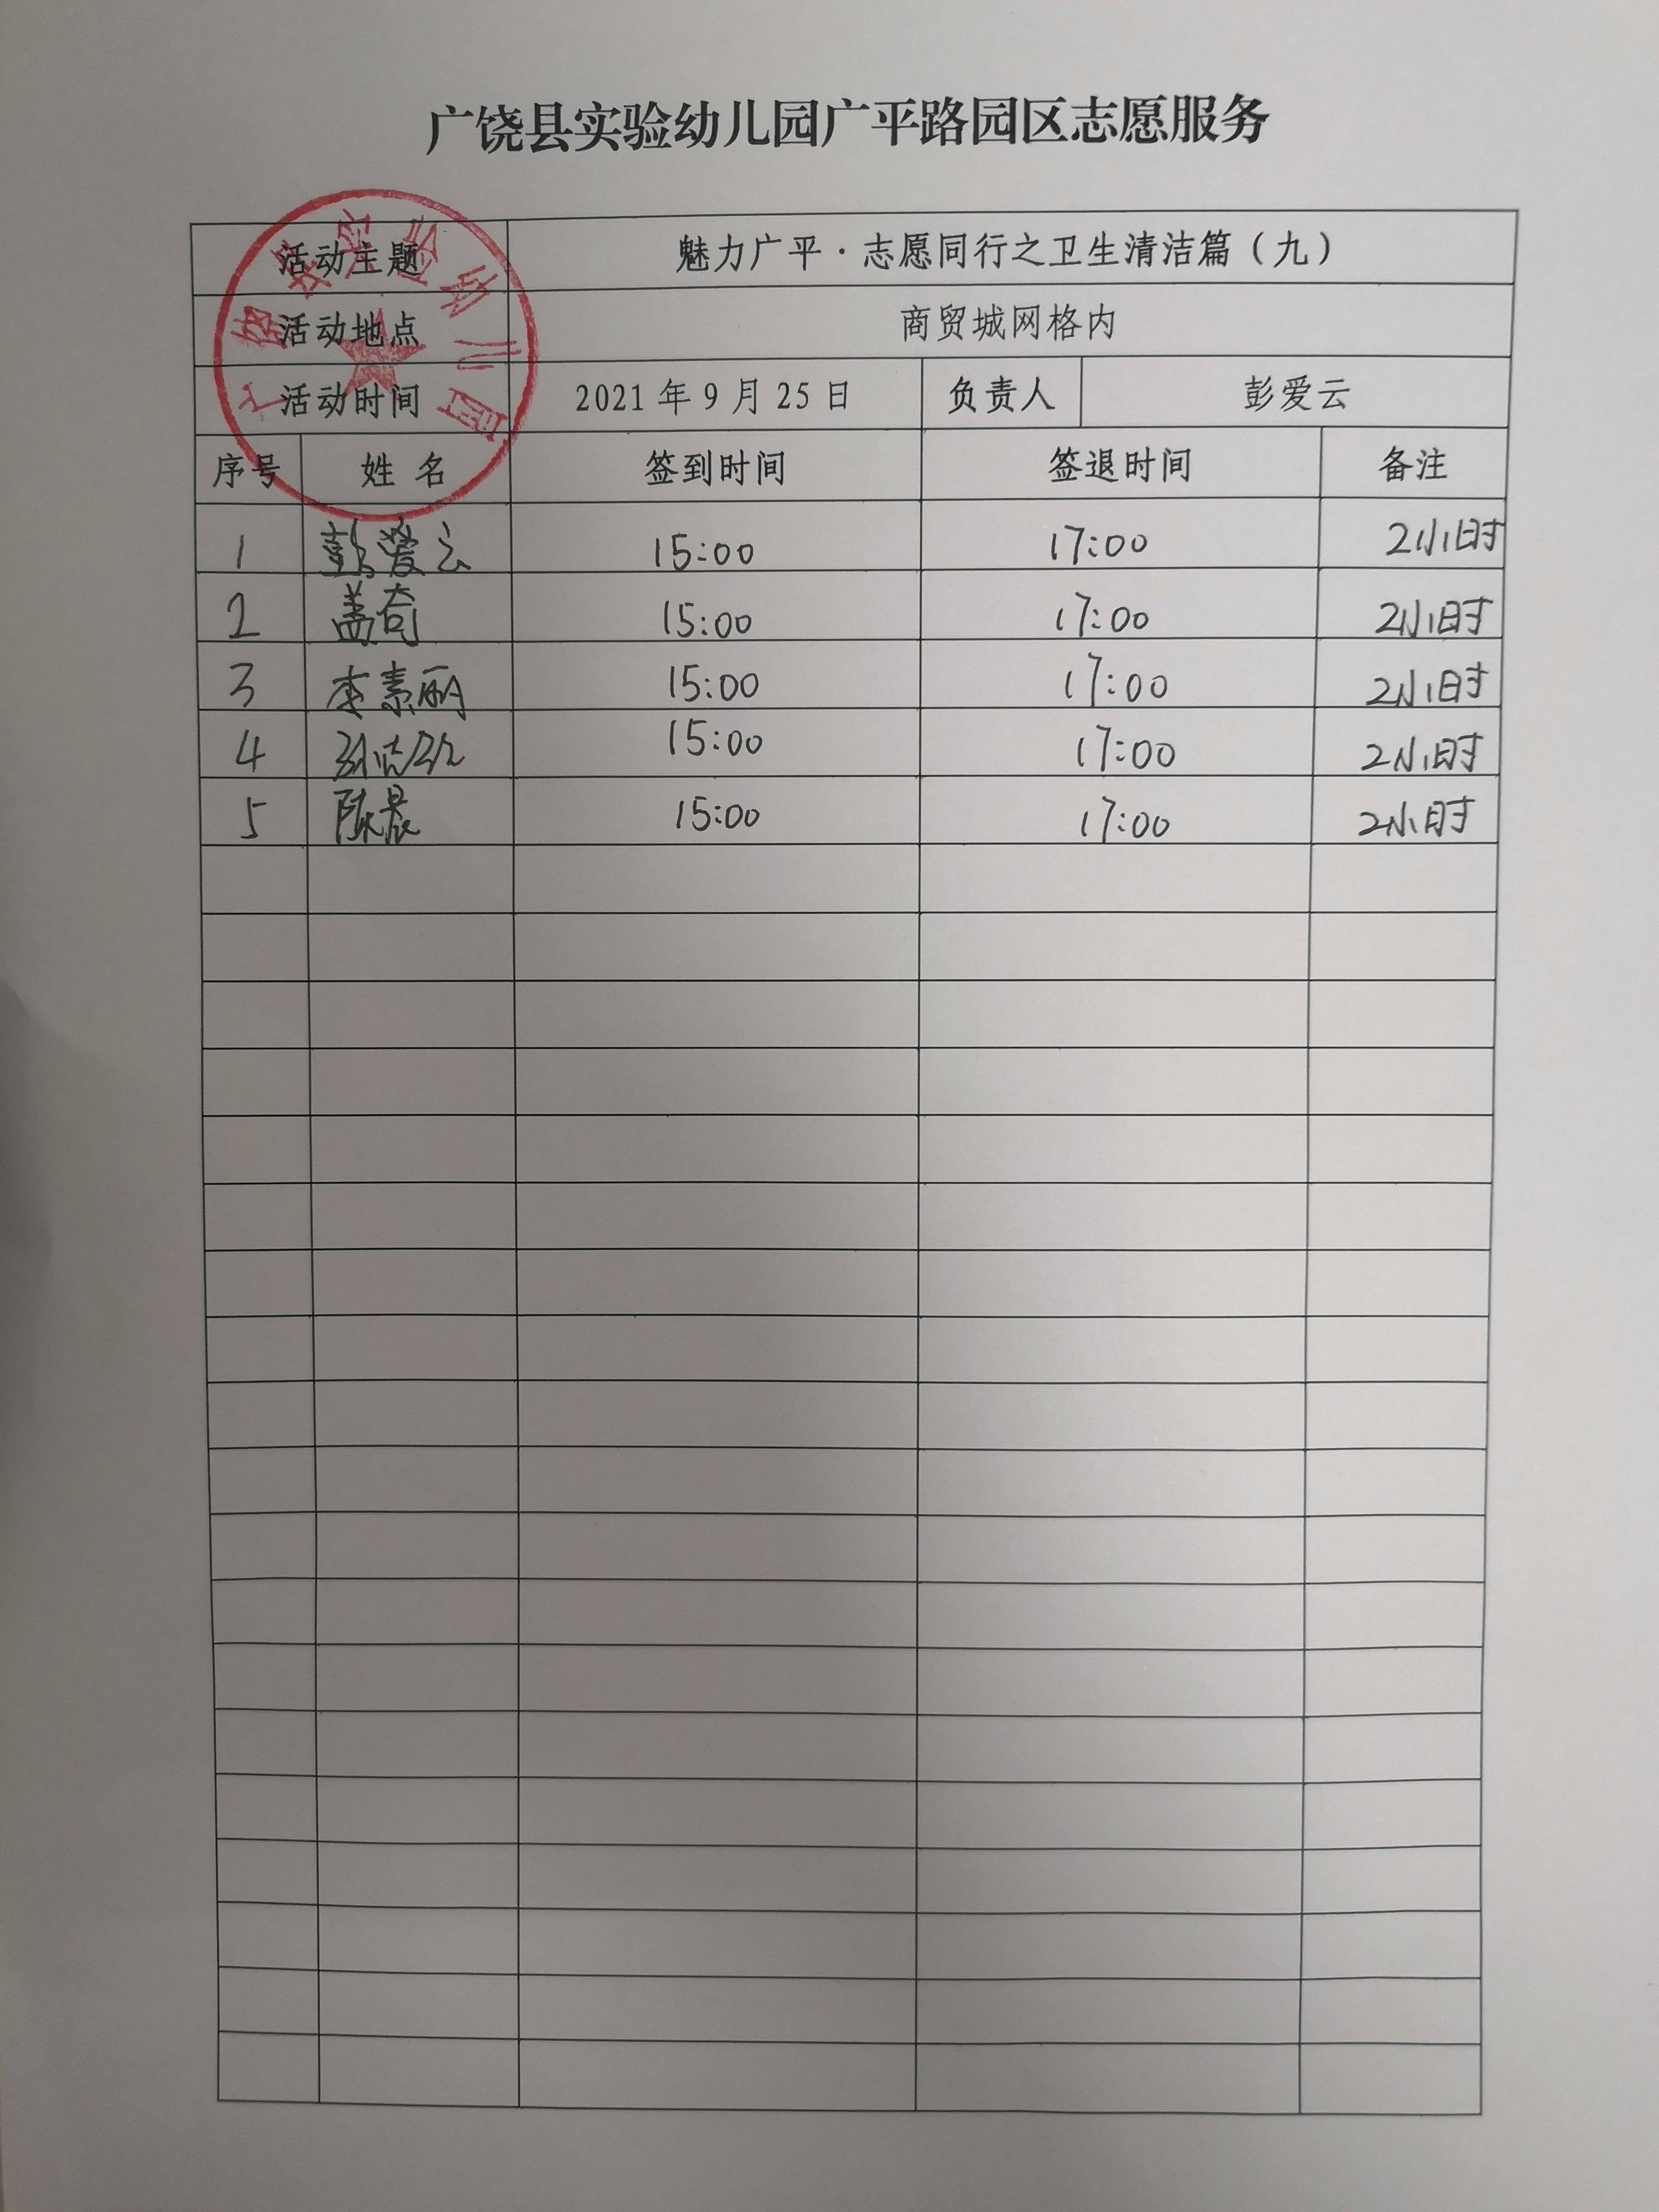 广饶县实验幼儿园广平路园区志愿服务
活动主题 魅力广平·志愿同行之卫生清洁篇（九）
活动地点 商贸城网格内
活动时间 2021年9月25日 负责人 彭爱云
序号 姓名 签到时间 签退时间 备注
1 彭爱云 15:00 17:00 2小时
2 盖奇 15:00 17:00 2小时
3 李素丽 15:00 17:00 2小时
4 15:00 17:00 2小时
5 陈晨 15:00 17:00 2小时
广饶县实验幼儿园